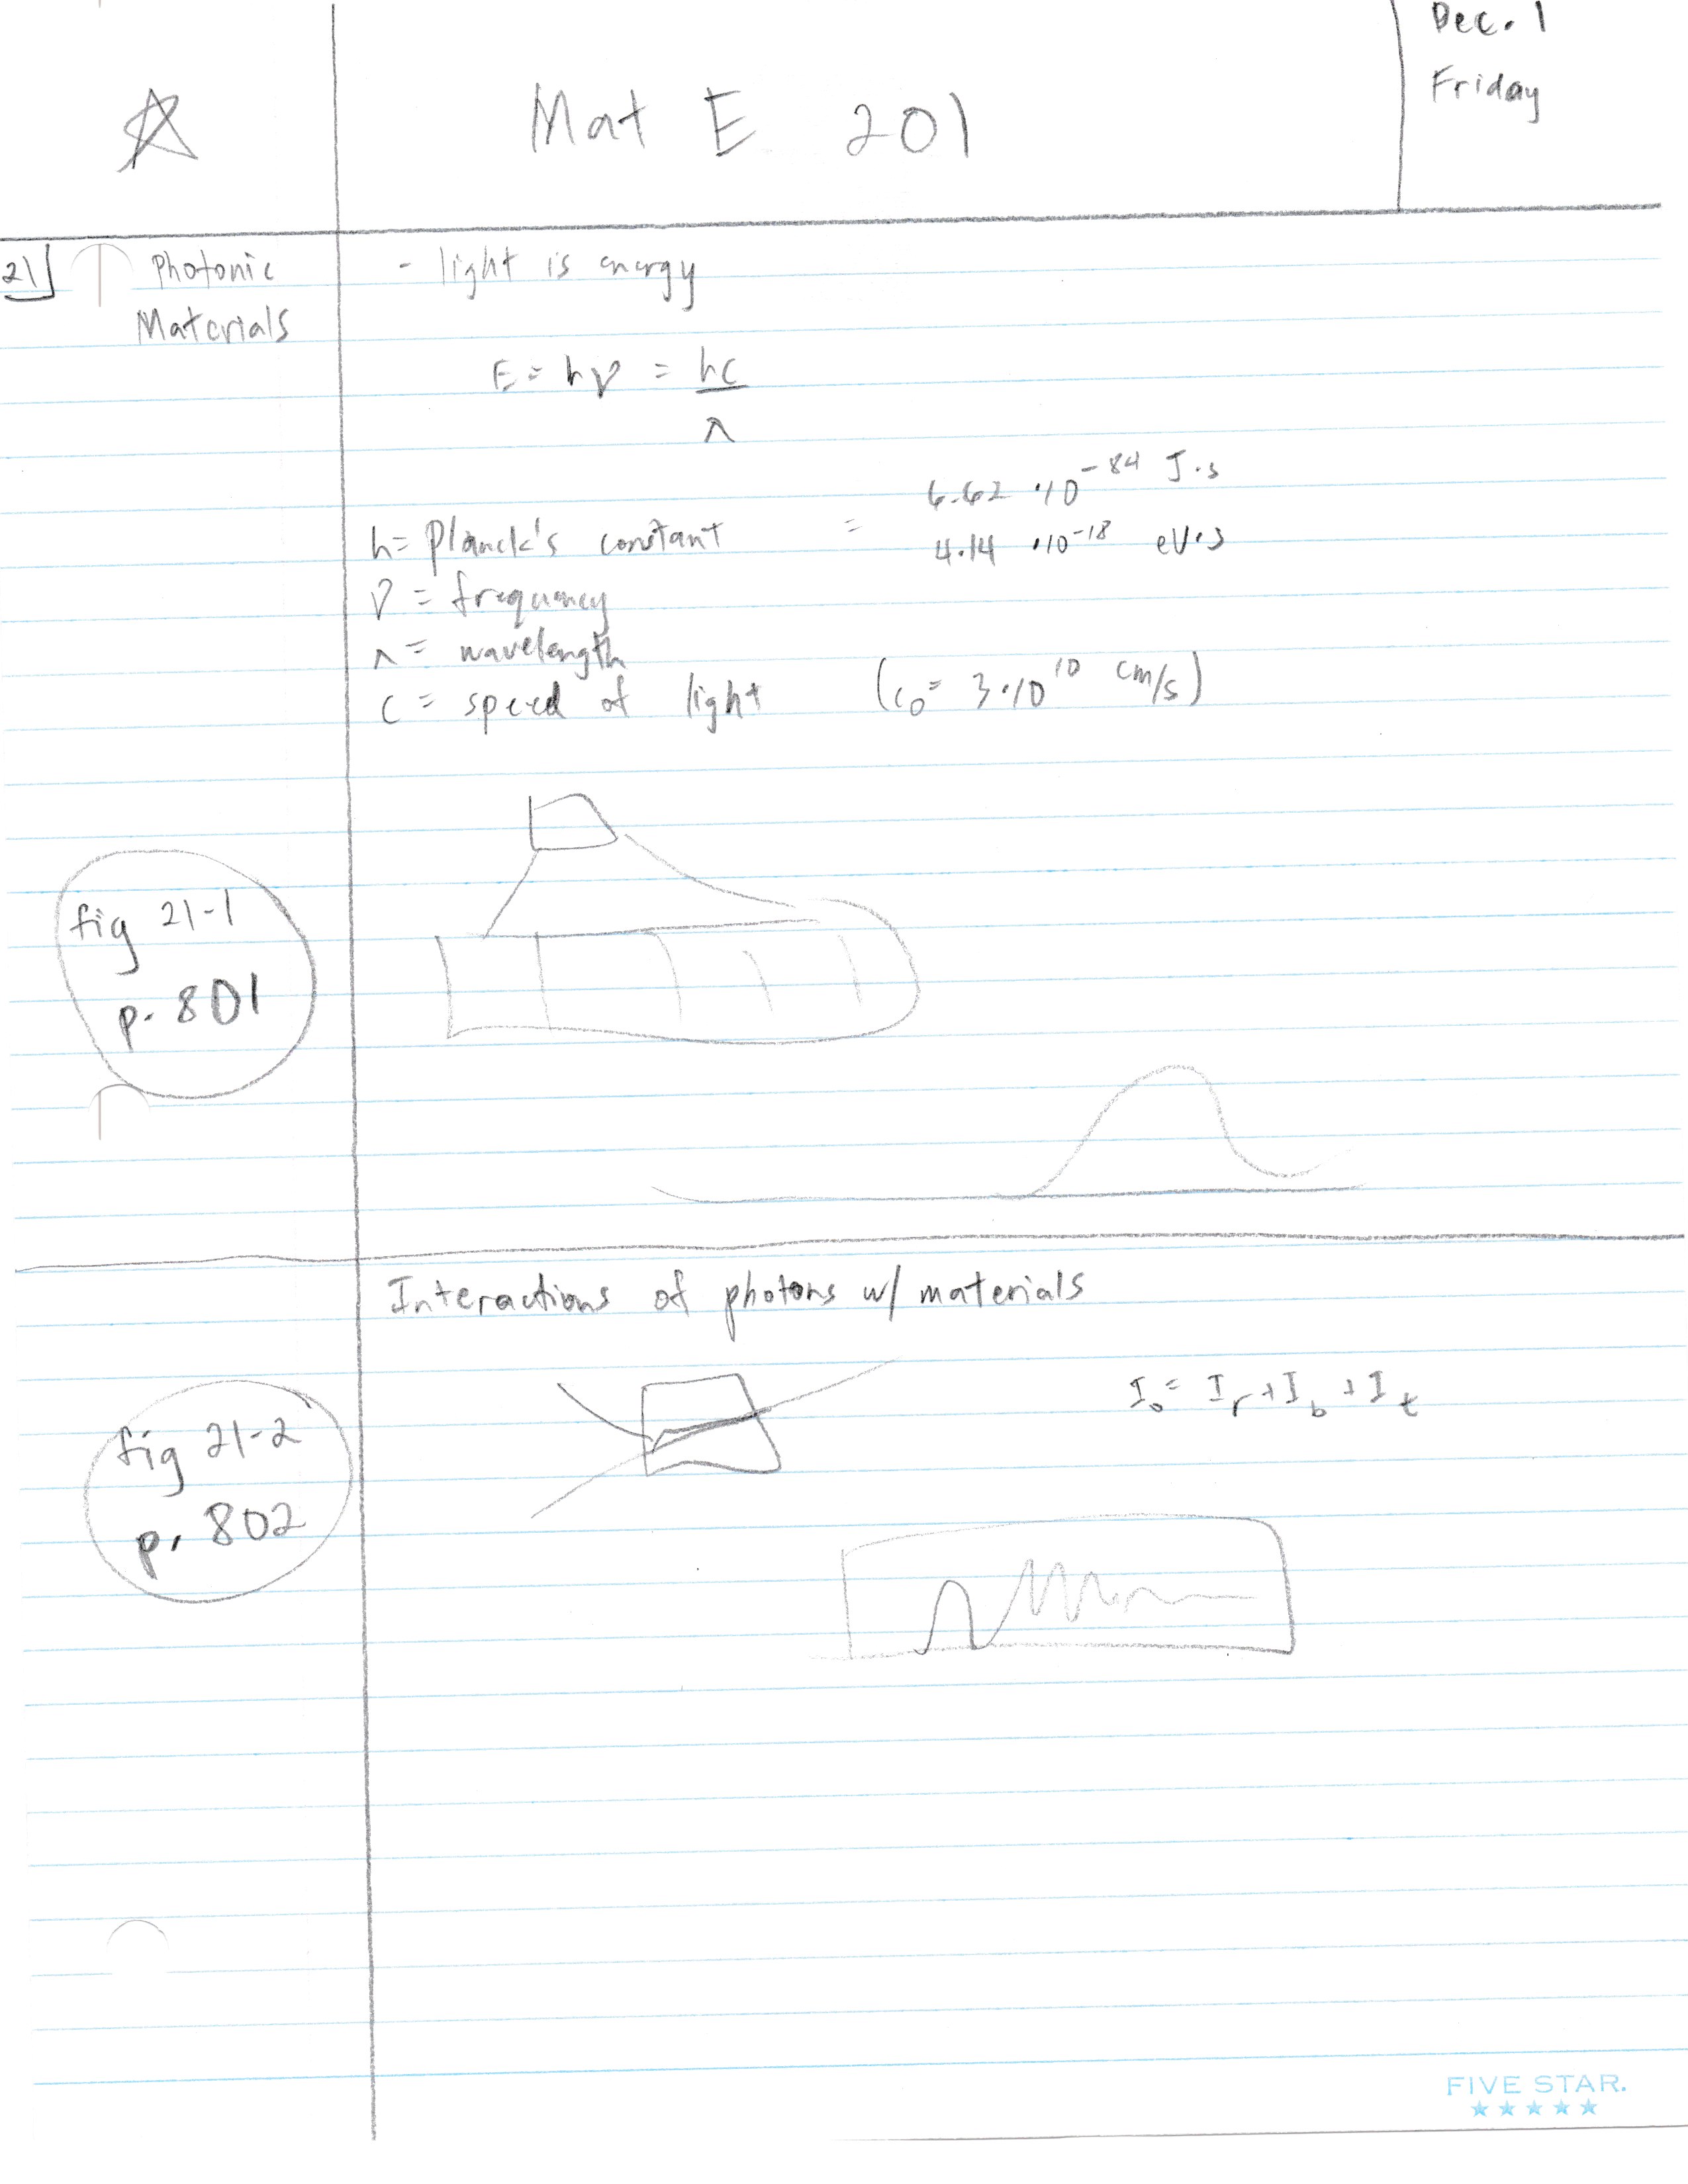 Dec. 1
Friday
Mat E 201
21
Photonic
Materials
- light is energy
E = hν = hc
λ
6.62 · 10^-84 J·s
h = Planck's constant =
4.14 · 10^-18 eV·s
ν = frequency
λ = wavelength
c = speed of light (c₀ = 3·10^10 cm/s)
fig 21-1
p. 801
Interactions of photons w/ materials
I₀ = I_r + I_b + I_t
fig 21-2
p. 802
FIVE STAR.